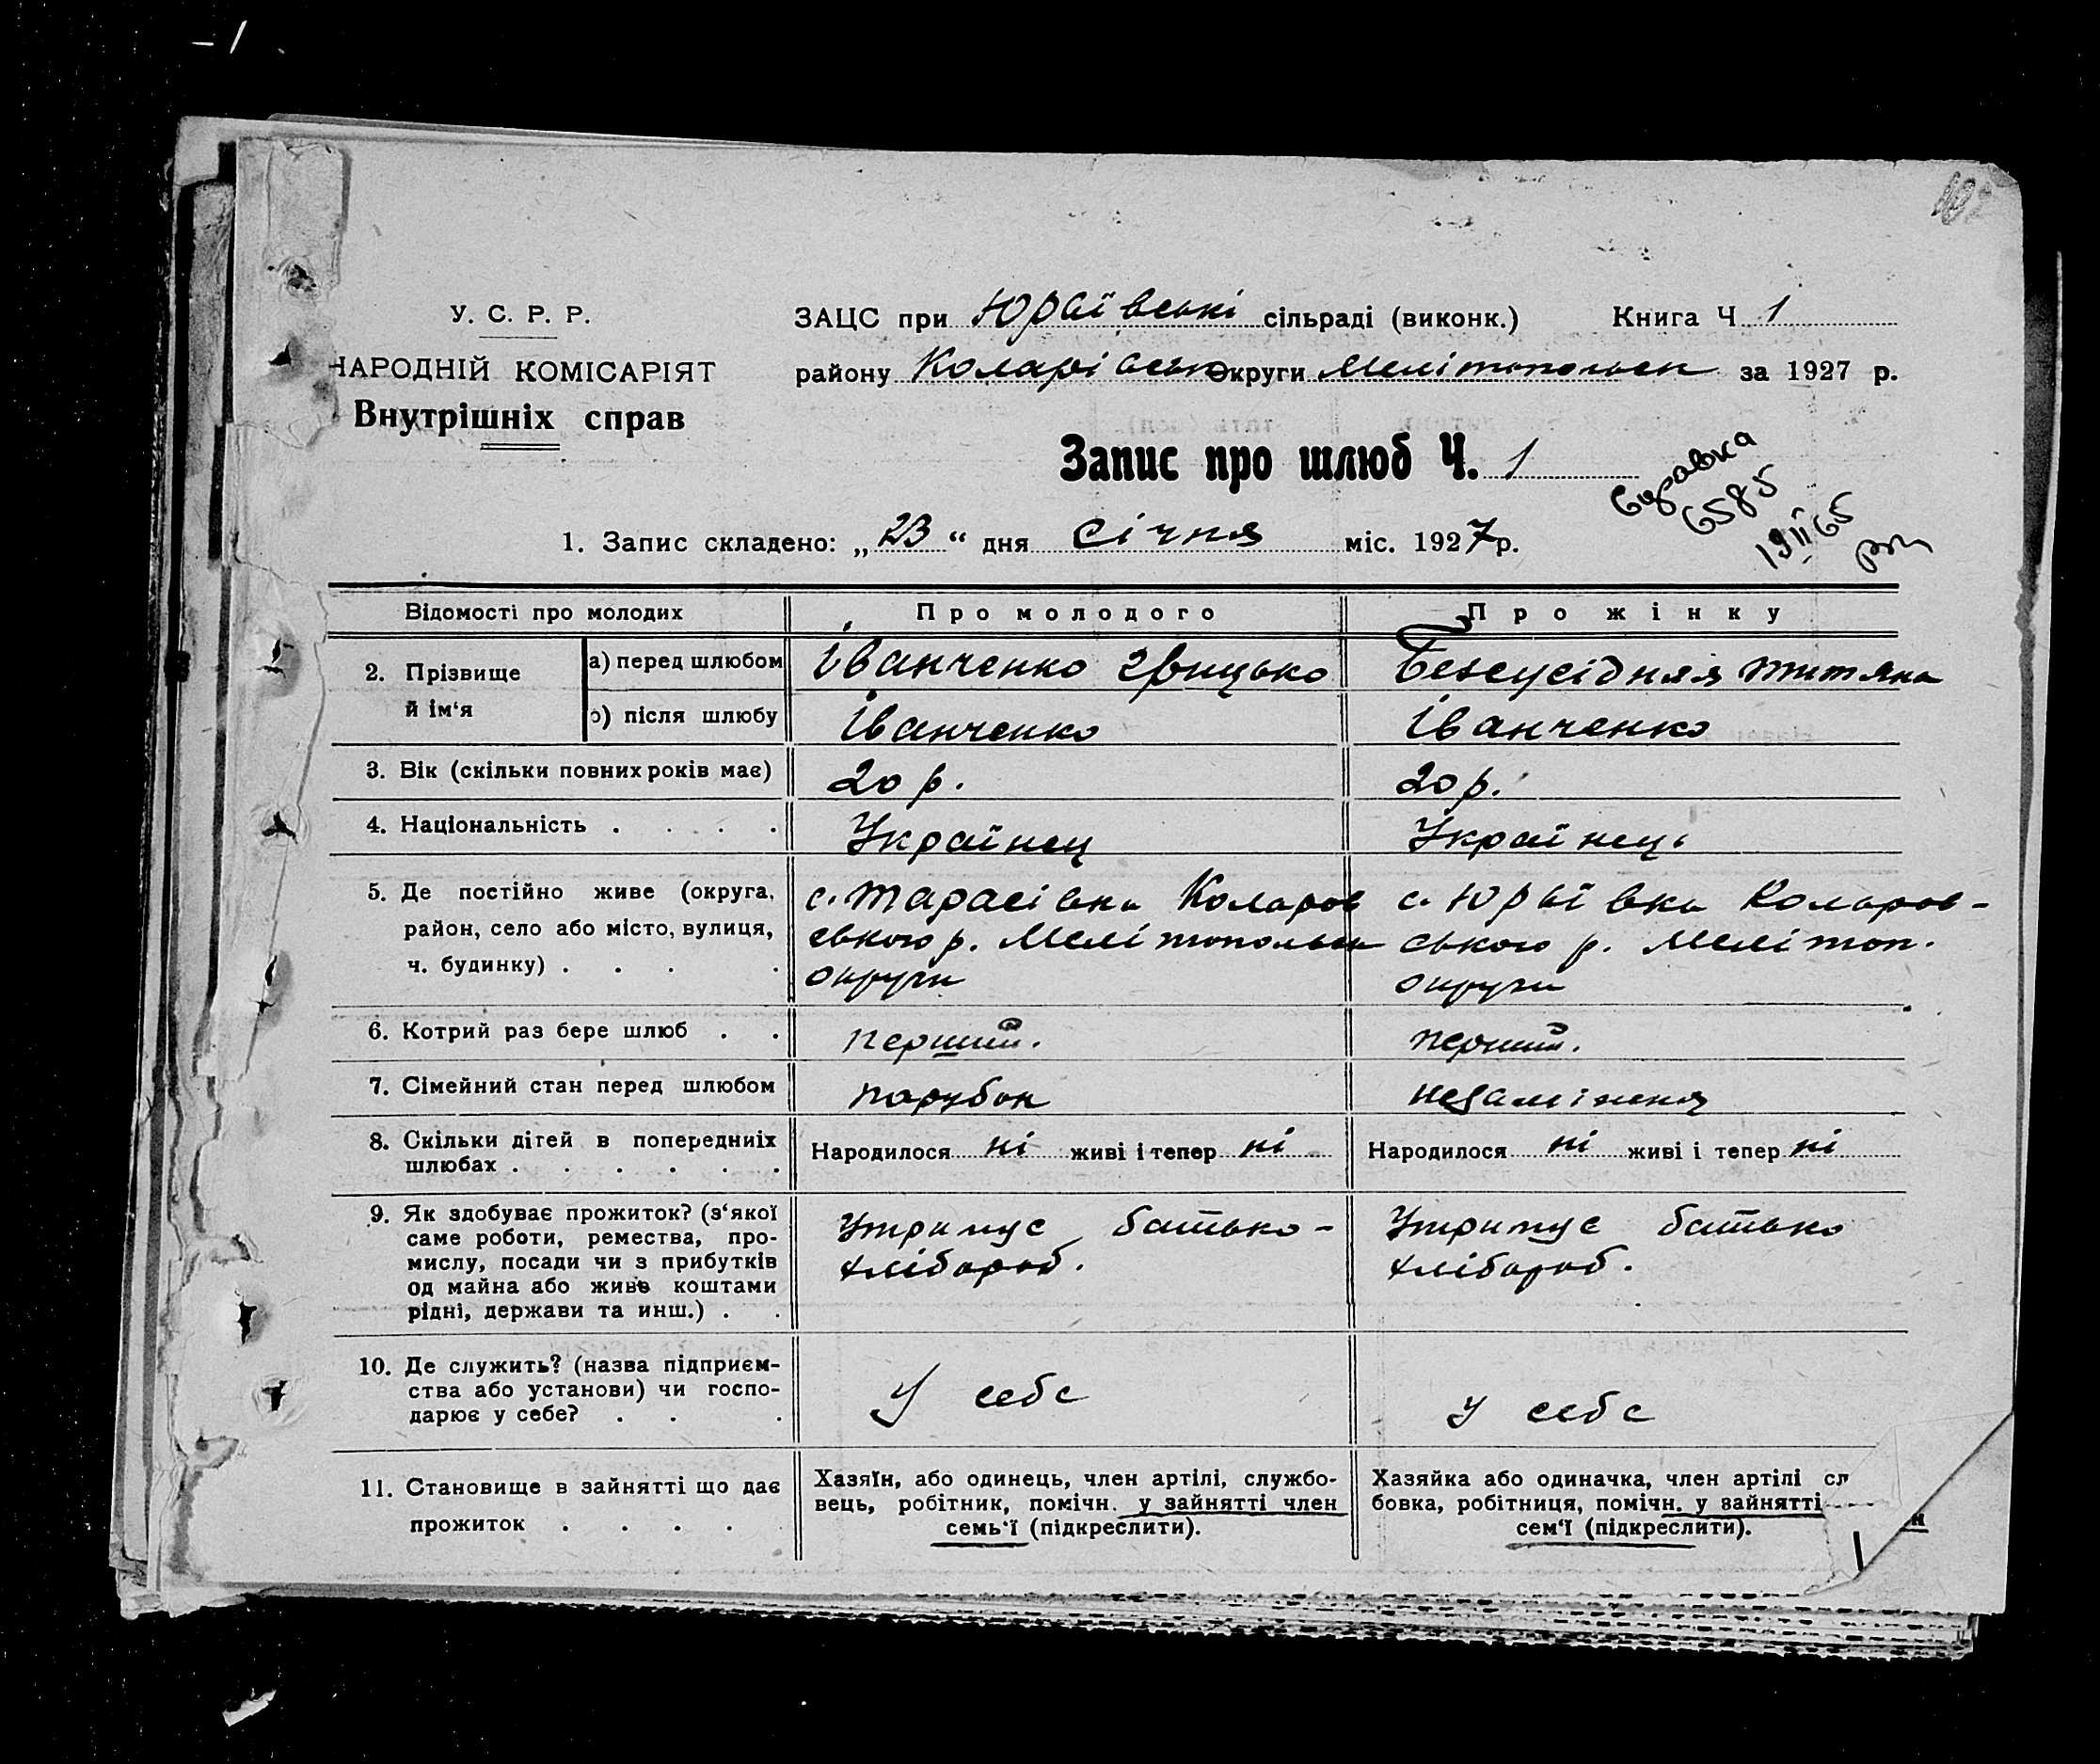 У. С. Р. Р.
НАРОДНІЙ КОМІСАРІЯТ
Внутрішніх справ
ЗАЦС при Юрʼївські сільраді (виконк.) Книга Ч. 1
району Коларівськ Округи Мелітопольськ за 1927 р.
Запис про шлюб Ч. 1
Справка
6585
19 II 65
1. Запис складено: „23“ дня Січня міс. 1927 р.
Відомості про молодих Про молодого Про жінку
2. Прізвище й ім‘я
а) перед шлюбом Іванченко Грицько Безсусідняя Титяна
б) після шлюбу Іванченко Іванченко
3. Вік (скільки повних років має) 20 р. 20 р.
4. Національність . . . . Українец Українець
5. Де постійно живе (округа, с. Тарасівка Коларов с. Юрʼївка Коларов-
район, село або місто, вулиця, ського р. Мелітопольськ ського р. Мелітоп.
ч. будинку) . . . . округи округи
6. Котрий раз бере шлюб . . перший. перший.
7. Сімейний стан перед шлюбом парубок незаміжня
8. Скільки дітей в попередниіх шлюбах . . . . . . Народилося ні живі і тепер ні Народилося ні живі і тепер ні
9. Як здобуває прожиток? (з‘якої Утримує батько- Утримує батько
саме роботи, ремества, про- хлібороб. хлібороб.
мислу, посади чи з прибутків
од майна або живе коштами
рідні, держави та инш.) . .
10. Де служить? (назва підприєм-
ства або установи) чи госпо- У себе У себе
дарює у себе? . . .
11. Становище в зайнятті що дає Хазяїн, або одинець, член артілі, службо- Хазяйка або одиначка, член артілі сл
прожиток . . . . . вець, робітник, помічн. у зайнятті член бовка, робітниця, помічн. у зайнятті
семь‘ї (підкреслити). сем‘ї (підкреслити).